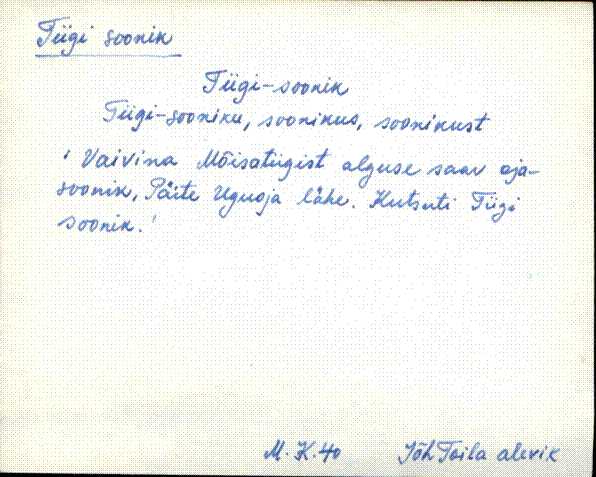 Tiigi soonik
Tiigi-soonik
Tiigi-sooniku, soonikus, soonikust
' Vaivina Mõisatiigist alguse saav oja-
soonik, Päite Uguoja lähe. Kutsuti Tiigi
soonik.'
M. K. 40 Jõh Toila alevik